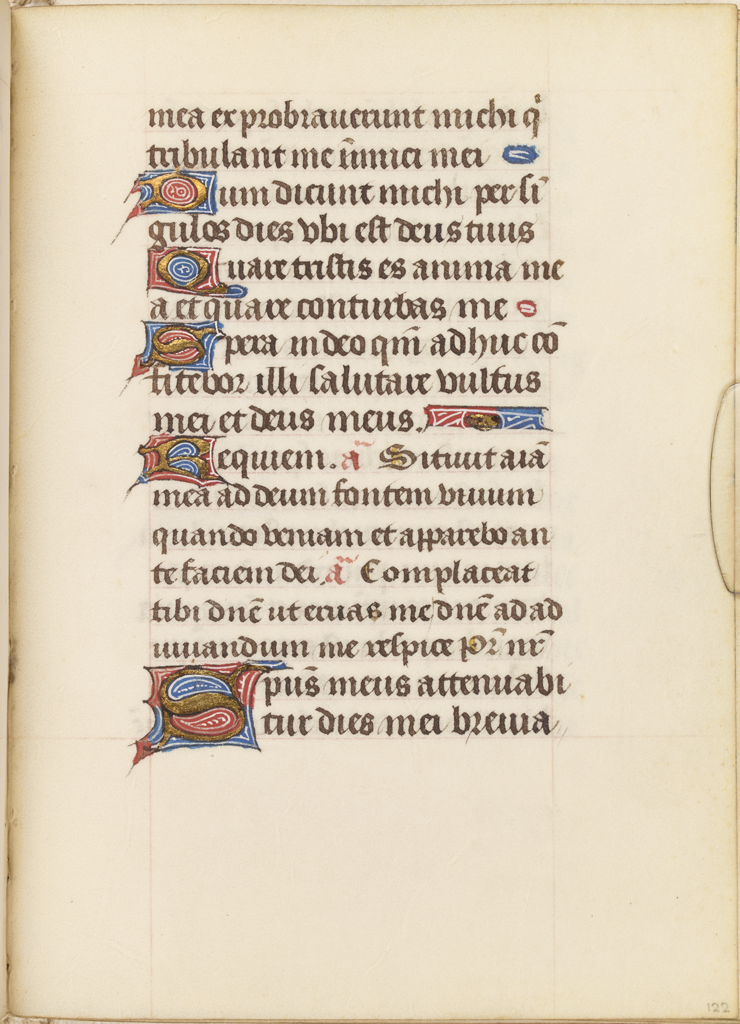 mea exprobrauerunt michi q̇
tribulant me inimici mei
Dum dicunt michi per si
gulos dies vbi est deus tuus
Quare tristis es anima me
a et quare conturbas me
Spera in deo qm̄ adhuc cō
fitebor illi salutare vultus
mei et deus meus.
Requiem. a᷉ Sitiuit aīā
mea ad deum fontem viuum
quando veniam et apparebo an
te faciem dei. a᷉ Complaceat
tibi dn̄e ut eruas me dn̄e ad ad
iuuandum me respice Pr̄ nr̄
Spūs meus attenuabi
tur dies mei breuia
122